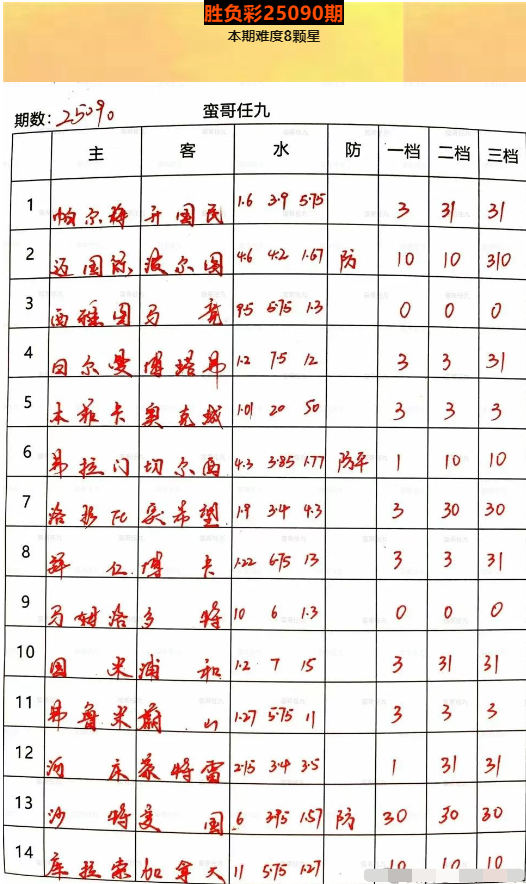 胜负彩25090期
本期难度8颗星
期数: 25090 蛮哥任九
主 客 水 防 一档 二档 三档
1 帕尔梅 开国民 1.6 3.9 5.75 3 31 31
2 迈国际 波尔图 4.6 4.2 1.67 防 10 10 310
3 西雅图 马竞 9.5 5.75 1.3 0 0 0
4 日尔曼 博塔弗 1.2 7.5 12 3 3 31
5 本菲卡 奥克城 1.01 20 50 3 3 3
6 弗拉门 切尔西 4.3 3.85 1.77 防平 1 10 10
7 洛杉 希望 1.9 3.4 4.3 3 30 30
8 拜仁 博卡 1.22 6.75 13 3 3 31
9 马姆洛 多特 10 6 1.3 0 0 0
10 国米 浦和 1.2 7 15 3 31 31
11 弗鲁米 蔚山 1.27 5.75 11 3 3 3
12 河床 蒙特雷 2.15 3.4 3.5 1 31 31
13 沙特 美国 6 3.95 1.57 防 30 30 30
14 库拉索 加拿大 11 5.75 1.27 10 10 10